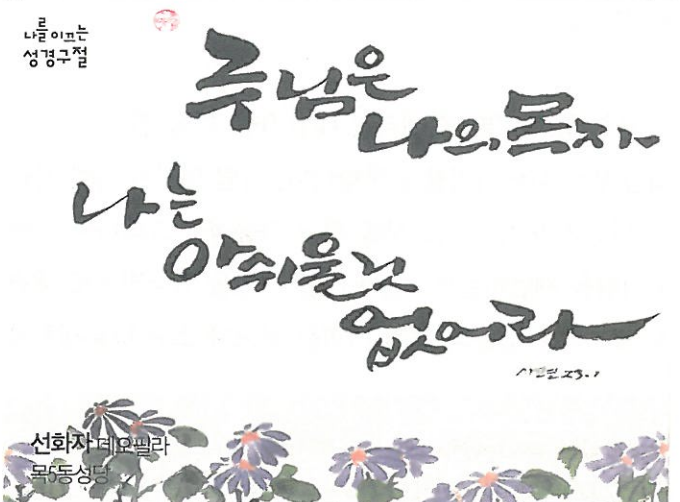 나를 이끄는
성경구절
주님은
나의 목자
나는
아쉬울 것
없어라
시편 23.1
선화자 데오필라
목5동성당